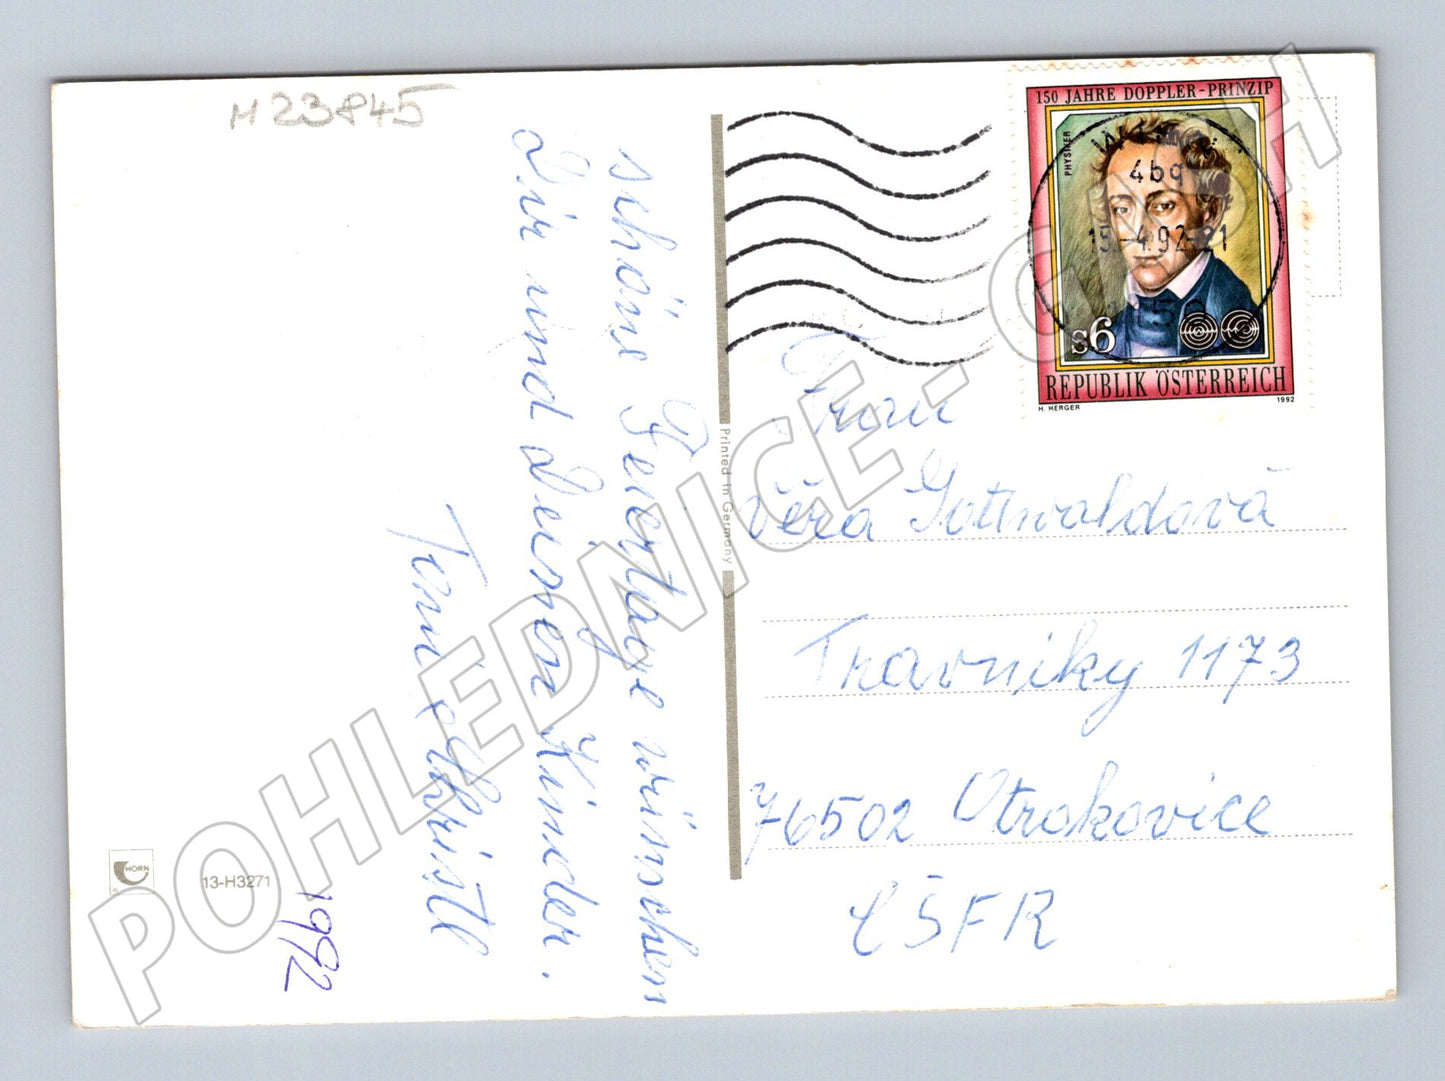 M23845
schöne Feiertage wünschen
Dir und Deinen Kinder.
Fam. Christl
1992
HORN
13-H3271
Printed in Germany
150 JAHRE DOPPLER-PRINZIP
PHYSIKER
4bq
15.-4.92-21
s6
REPUBLIK ÖSTERREICH
H. HERGER
1992
Frau
Věra Gottwaldová
Travniky 1173
76502 Otrokovice
ČSFR
POHLEDNICE - CASH